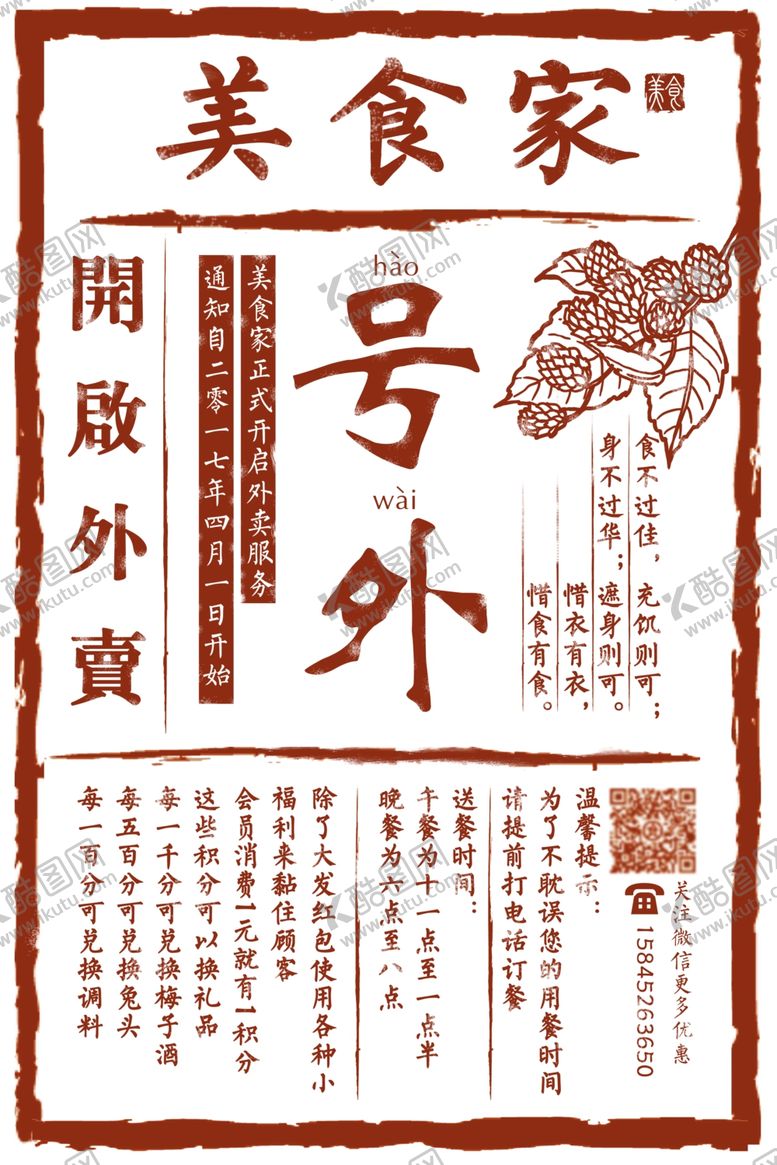 美食家
美食
開啟外賣
美食家正式开启外卖服务
通知自二零一七年四月一日开始
hào
号
wài
外
食不过佳，充饥则可；
身不过华；遮身则可。
惜衣有衣，
惜食有食。
关注微信更多优惠
15845263650
温馨提示：
为了不耽误您的用餐时间
请提前打电话订餐
送餐时间：
午餐为十一点至一点半
晚餐为六点至八点
除了大发红包使用各种小
福利来黏住顾客
会员消费1元就有1积分
这些积分可以换礼品
每一千分可兑换梅子酒
每五百分可兑换兔头
每一百分可兑换调料
酷图网
www.ikutu.com